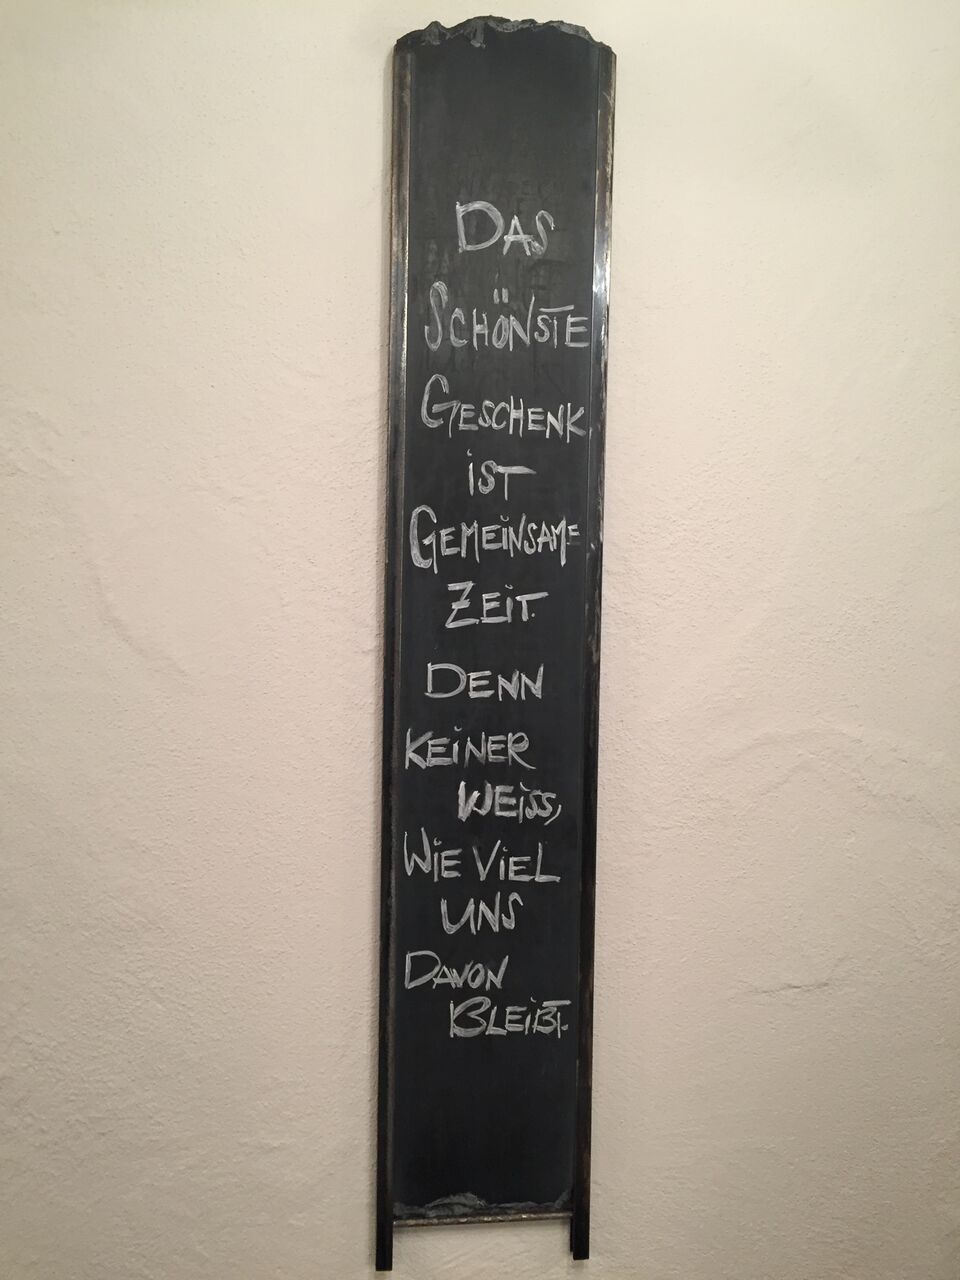 DAS
SCHÖNSTE
GESCHENK
iST
GEMEiNSAME
ZEiT.
DENN
KEiNER
WEiSS,
WiE ViEL
UNS
DAVON
BLEiBT.